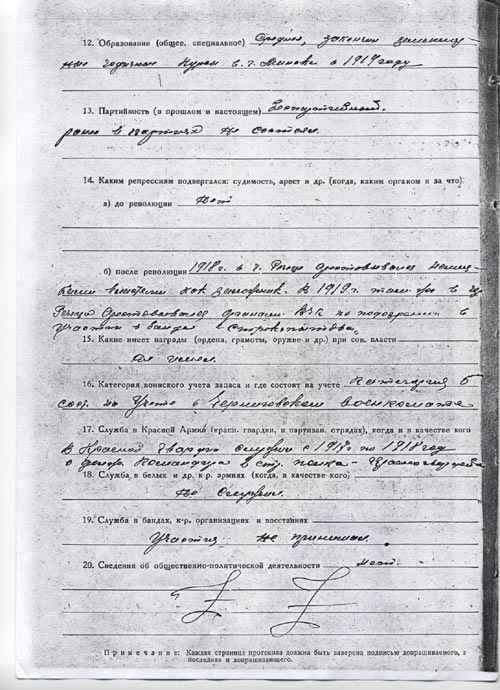 12. Образование (общее, специальное) Среднее, закончил
годичные курсы в г. Минске в 1917 году
13. Партийность (в прошлом и настоящем) Беспартийный.
ранее в партиях не состоял.
14. Каким репрессиям подвергался: судимость, арест и др. (когда, каким органом и за что):
а) до революции нет
б) после революции 1918 г. в г. арестовывался
властями как заложник. В 1919 г. там же в г.
арестовывался органами ВЧК по подозрению в
участии в банде
15. Какие имеет награды (ордена, грамоты, оружие и др.) при сов. власти
не имел.
16. Категория воинского учета запаса и где состоит на учете категория
сост. на учете в Черниговском военкомате
17. Служба в Красной Армии (красн. гвардии, в партизан. отрядах), когда и в качестве кого
В Красной гвардии служил с 1917 по 1918 год
в полка – Красногвардейца
18. Служба в белых и др. к-р. армиях (когда, в качестве кого)
не служил.
19. Служба в бандах, к-р. организациях и восстаниях
Участия не принимал.
20. Сведения об общественно-политической деятельности нет.
Примечание: Каждая страница протокола должна быть заверена подписью допрашиваемого, а
последняя и допрашивающего.